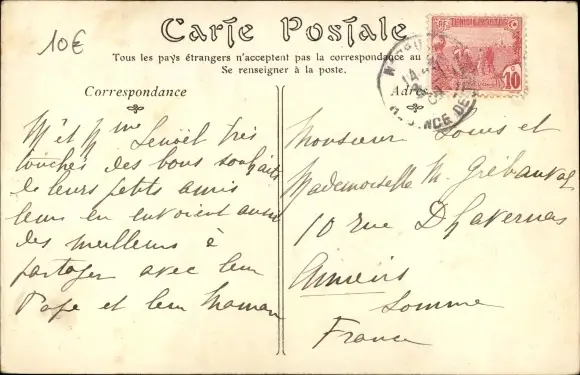 10€
Carte Postale
Tous les pays étrangers n'acceptent pas la correspondance au
Se renseigner à la poste.
Correspondance
Adres
TUNISIE
RF
10
M et Mme Lenoël très
touchés des bons souhaits
de leurs petits amis
leur en envoient aussi
des meilleurs à
partager avec leur
Papa et leur Maman
Monsieur Louis et
Mademoiselle M. Grébauval
10 rue Dhavernas
Amiens
Somme
France